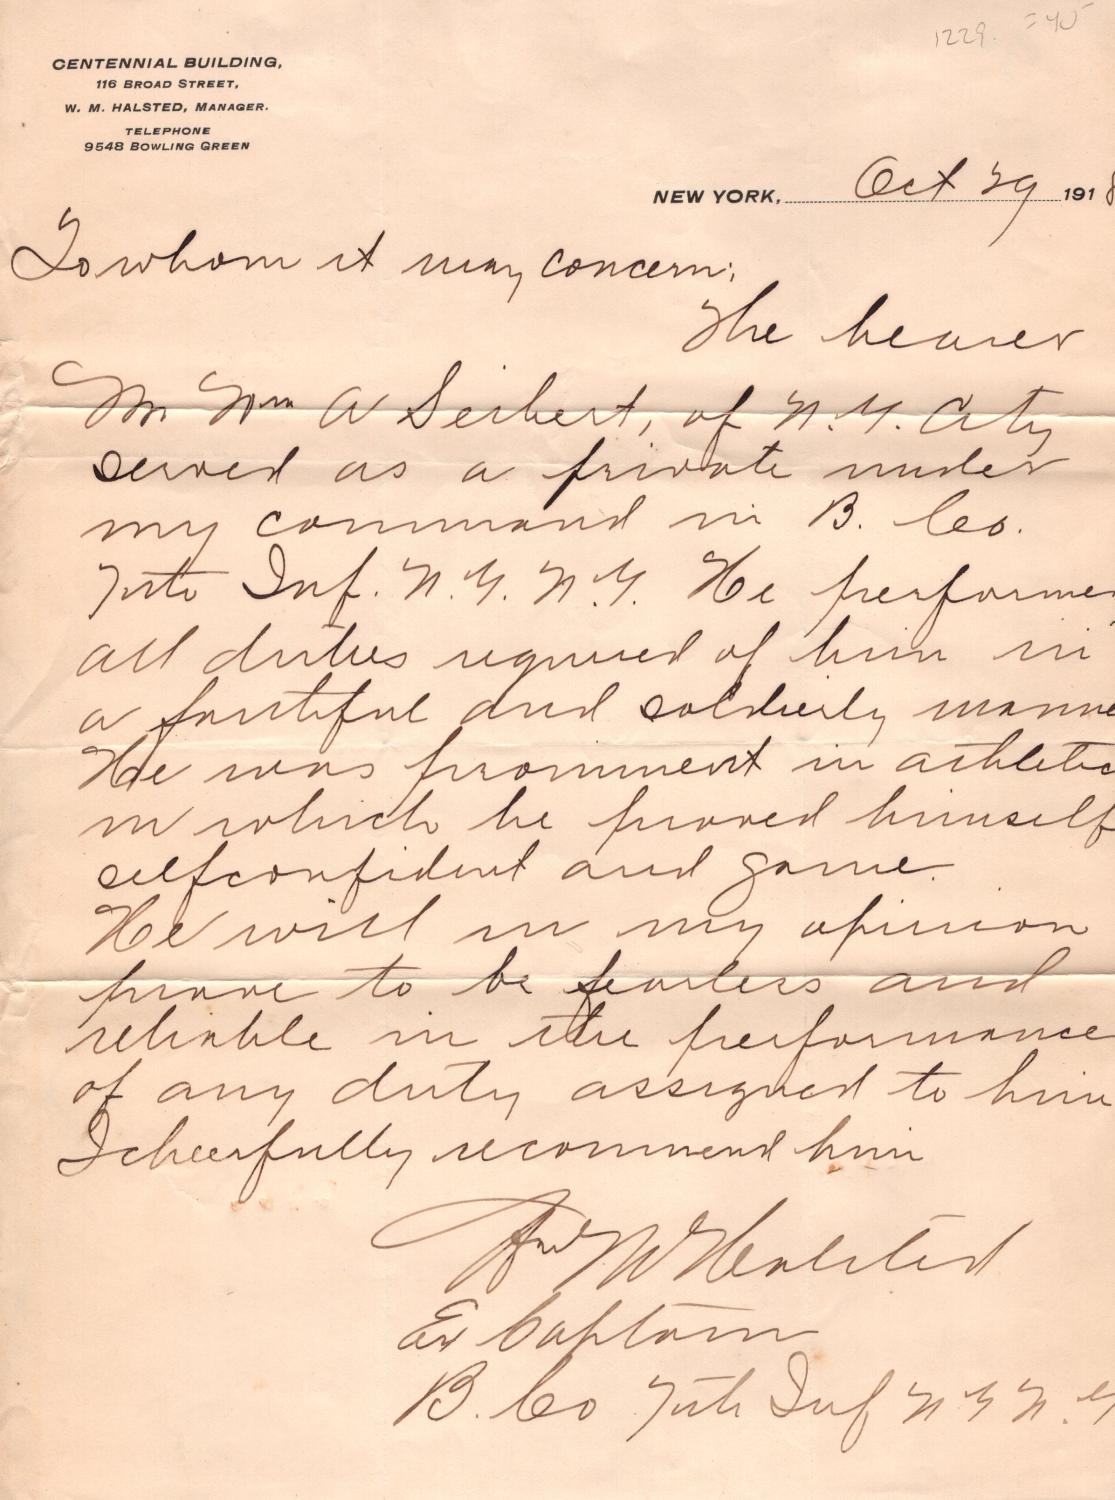 1229.
CENTENNIAL BUILDING,
116 BROAD STREET,
W. M. HALSTED, MANAGER.
TELEPHONE
9548 BOWLING GREEN
NEW YORK, Oct 29 1918
To whom it may concern;
The bearer
Mr Wm A Seibert, of N.Y. City
served as a private under
my command in B. Co.
7th Inf. N.G. N.Y. He performe
all duties required of him in
a faithful and soldierly manne
He was prominent in athletic
in which he proved himself
selfconfident and game.
He will in my opinion
prove to be fearless and
reliable in the performance
of any duty assigned to him
I cheerfully recommend him
W Halsted
Ex Captain
B. Co Inf N G N.Y